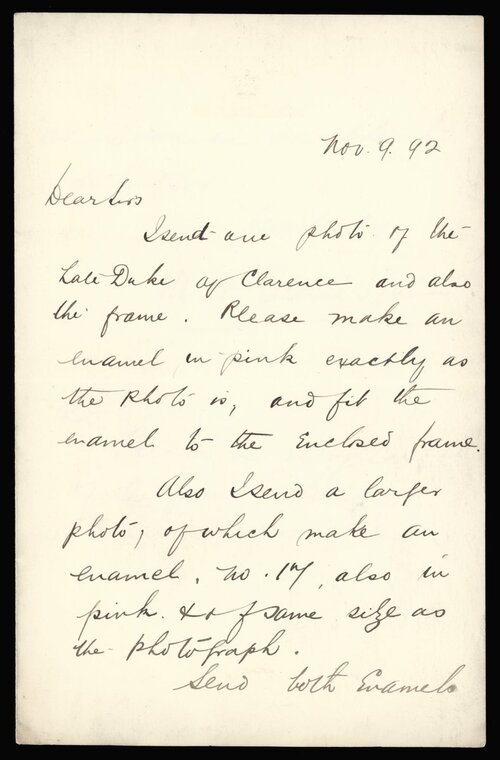 Nov. 9. 92
Dear Sirs
I send one photo of the
Late Duke of Clarence and also
the frame. Please make an
enamel in pink exactly as
the Photo is, and fit the
enamel to the Enclosed frame.
Also I send a larger
photo, of which make an
enamel, no. 17, also in
pink & of same size as
the Photograph.
Send both Enamels